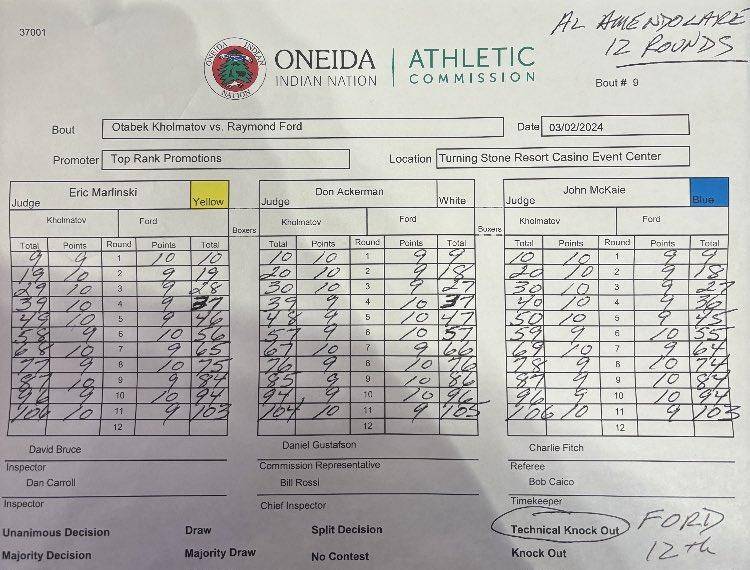 37001
AL AMENDOLARE
12 ROUNDS
ONEIDA INDIAN NATION
ONEIDA
INDIAN NATION
ATHLETIC
COMMISSION
Bout # 9
Bout Otabek Kholmatov vs. Raymond Ford Date 03/02/2024
Promoter Top Rank Promotions Location Turning Stone Resort Casino Event Center
Judge Eric Marlinski Yellow Judge Don Ackerman White Judge John McKaie Blue
Kholmatov Ford Boxers Kholmatov Ford Boxers Kholmatov Ford
Total Points Round Points Total Total Points Round Points Total Total Points Round Points Total
9 9 1 10 10 10 10 1 9 9 10 10 1 9 9
19 10 2 9 19 20 10 2 9 18 20 10 2 9 18
29 10 3 9 28 30 10 3 9 27 30 10 3 9 27
39 10 4 9 37 39 9 4 10 37 40 10 4 9 36
49 10 5 9 46 48 9 5 10 47 50 10 5 9 45
58 9 6 10 56 57 9 6 10 57 59 9 6 10 55
68 10 7 9 65 67 10 7 9 66 69 10 7 9 64
77 9 8 10 75 76 9 8 10 76 78 9 8 10 74
87 10 9 9 84 85 9 9 10 86 87 9 9 10 84
96 9 10 10 94 94 9 10 10 96 96 9 10 10 94
106 10 11 9 103 104 10 11 9 105 106 10 11 9 103
12 12 12
David Bruce Daniel Gustafson Charlie Fitch
Inspector Commission Representative Referee
Dan Carroll Bill Rossi Bob Caico
Inspector Chief Inspector Timekeeper
Unanimous Decision Draw Split Decision Technical Knock Out FORD
Majority Decision Majority Draw No Contest Knock Out 12th